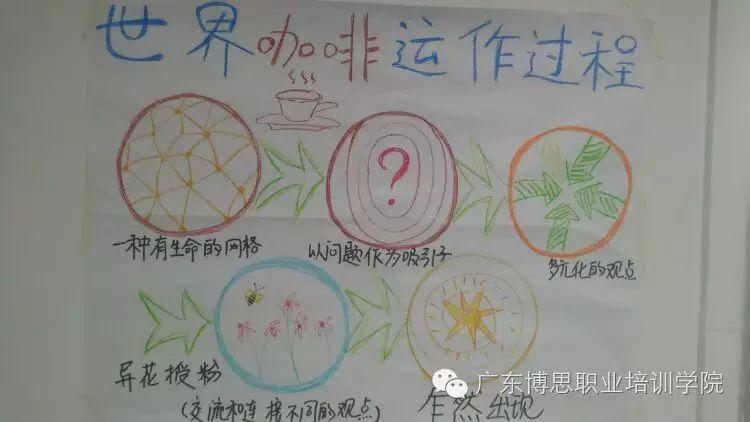 世界咖啡运作过程
?
一种有生命的网格
以问题作为吸引子
多元化的观点
异花授粉
(交流和连接不同的观点)
乍然出现
广东博思职业培训学院